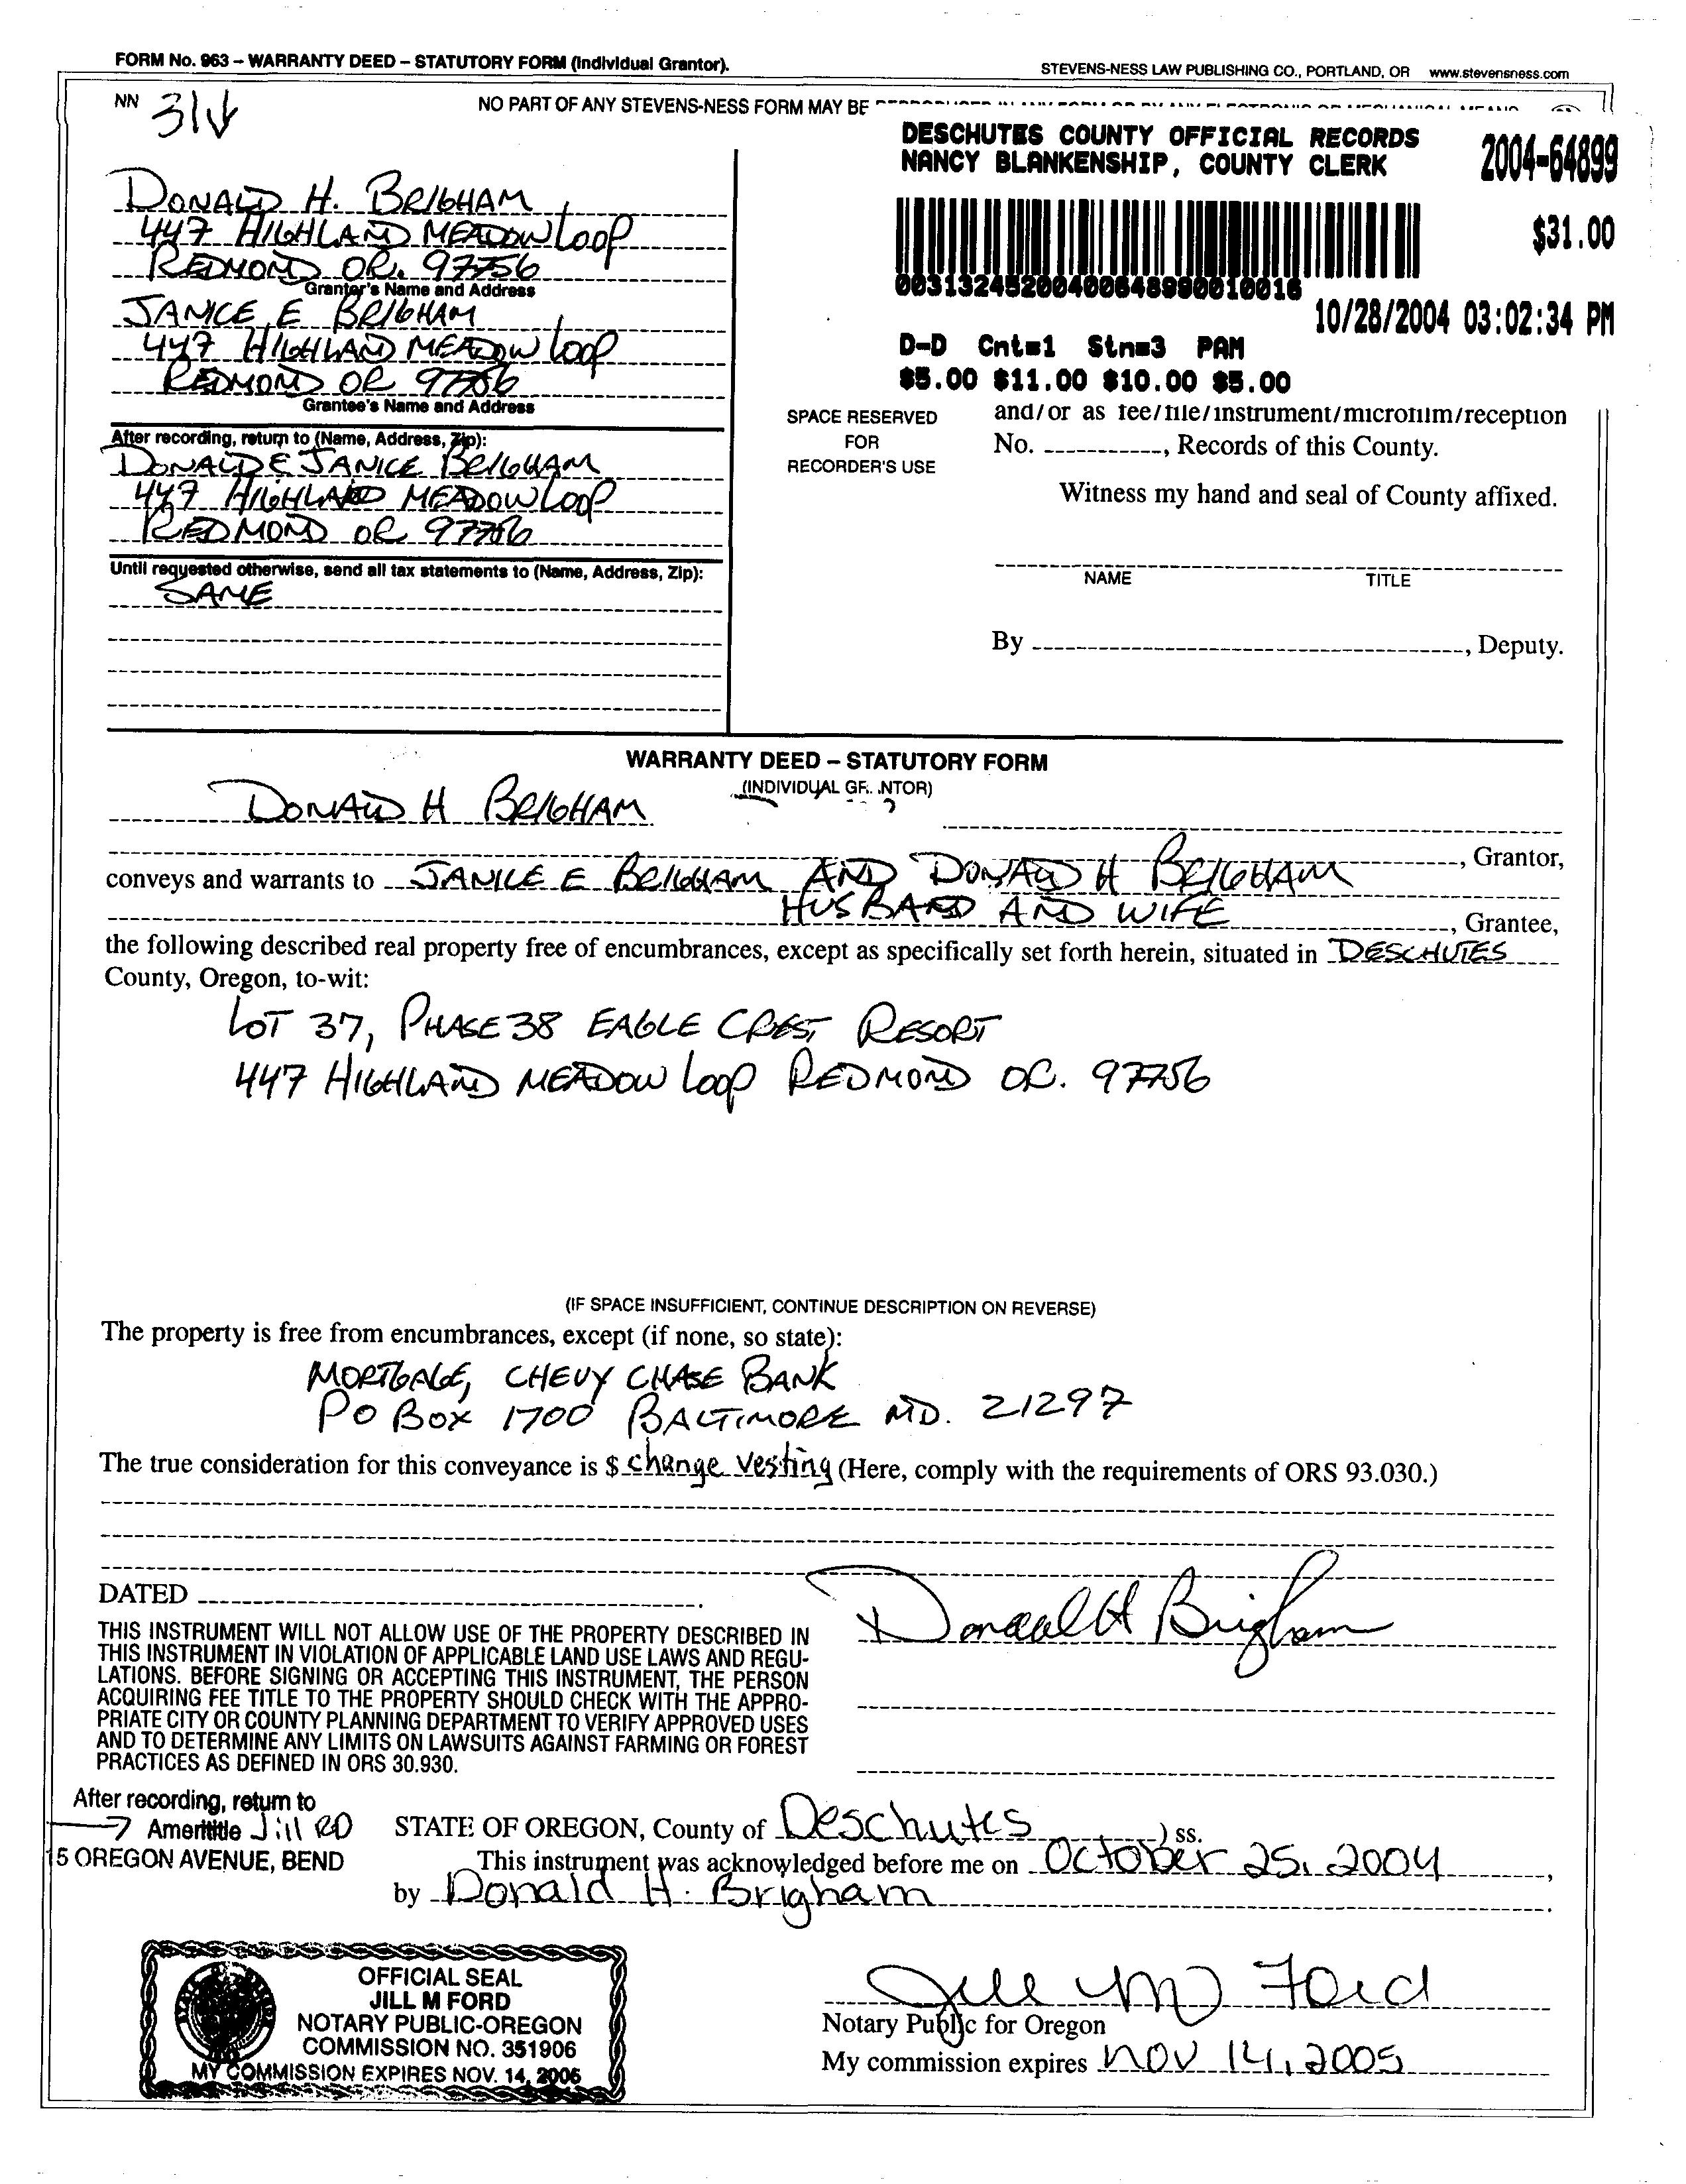 FORM No. 963 – WARRANTY DEED – STATUTORY FORM (Individual Grantor).
STEVENS-NESS LAW PUBLISHING CO., PORTLAND, OR www.stevensness.com
NN 31
NO PART OF ANY STEVENS-NESS FORM MAY BE
DESCHUTES COUNTY OFFICIAL RECORDS
NANCY BLANKENSHIP, COUNTY CLERK
2004-64899
$31.00
00313245200400648990010016
10/28/2004 03:02:34 PM
D-D Cnt=1 Stn=3 PAM
$5.00 $11.00 $10.00 $5.00
DONALD H. BRIGHAM
447 HIGHLAND MEADOW LOOP
REDMOND OR. 97756
Grantor's Name and Address
JANICE E BRIGHAM
447 HIGHLAND MEADOW LOOP
REDMOND OR 97756
Grantee's Name and Address
After recording, return to (Name, Address, Zip):
DONALD & JANICE BRIGHAM
447 HIGHLAND MEADOW LOOP
REDMOND OR 97756
Until requested otherwise, send all tax statements to (Name, Address, Zip):
SAME
SPACE RESERVED
FOR
RECORDER'S USE
and/or as fee/file/instrument/microfilm/reception
No. , Records of this County.
Witness my hand and seal of County affixed.
NAME TITLE
By , Deputy.
WARRANTY DEED – STATUTORY FORM
(INDIVIDUAL GR NTOR)
DONALD H BRIGHAM
, Grantor,
conveys and warrants to JANICE E BRIGHAM AND DONALD H BRIGHAM
HUSBAND AND WIFE
, Grantee,
the following described real property free of encumbrances, except as specifically set forth herein, situated in DESCHUTES
County, Oregon, to-wit:
LOT 37, PHASE 38 EAGLE CREST RESORT
447 HIGHLAND MEADOW LOOP REDMOND OR. 97756
(IF SPACE INSUFFICIENT, CONTINUE DESCRIPTION ON REVERSE)
The property is free from encumbrances, except (if none, so state):
MORTGAGE, CHEVY CHASE BANK
PO BOX 1700 BALTIMORE MD. 21297
The true consideration for this conveyance is $ change vesting (Here, comply with the requirements of ORS 93.030.)
DATED .
x Donald H Brigham
THIS INSTRUMENT WILL NOT ALLOW USE OF THE PROPERTY DESCRIBED IN
THIS INSTRUMENT IN VIOLATION OF APPLICABLE LAND USE LAWS AND REGU-
LATIONS. BEFORE SIGNING OR ACCEPTING THIS INSTRUMENT, THE PERSON
ACQUIRING FEE TITLE TO THE PROPERTY SHOULD CHECK WITH THE APPRO-
PRIATE CITY OR COUNTY PLANNING DEPARTMENT TO VERIFY APPROVED USES
AND TO DETERMINE ANY LIMITS ON LAWSUITS AGAINST FARMING OR FOREST
PRACTICES AS DEFINED IN ORS 30.930.
After recording, return to
Amerititle Jill RD
15 OREGON AVENUE, BEND
STATE OF OREGON, County of Deschutes ) ss.
This instrument was acknowledged before me on October 25, 2004,
by Donald H. Brigham .
OFFICIAL SEAL
JILL M FORD
NOTARY PUBLIC-OREGON
COMMISSION NO. 351906
MY COMMISSION EXPIRES NOV. 14, 2005
Jill M Ford
Notary Public for Oregon
My commission expires Nov 14, 2005